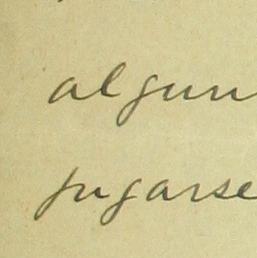 algun
jugarse